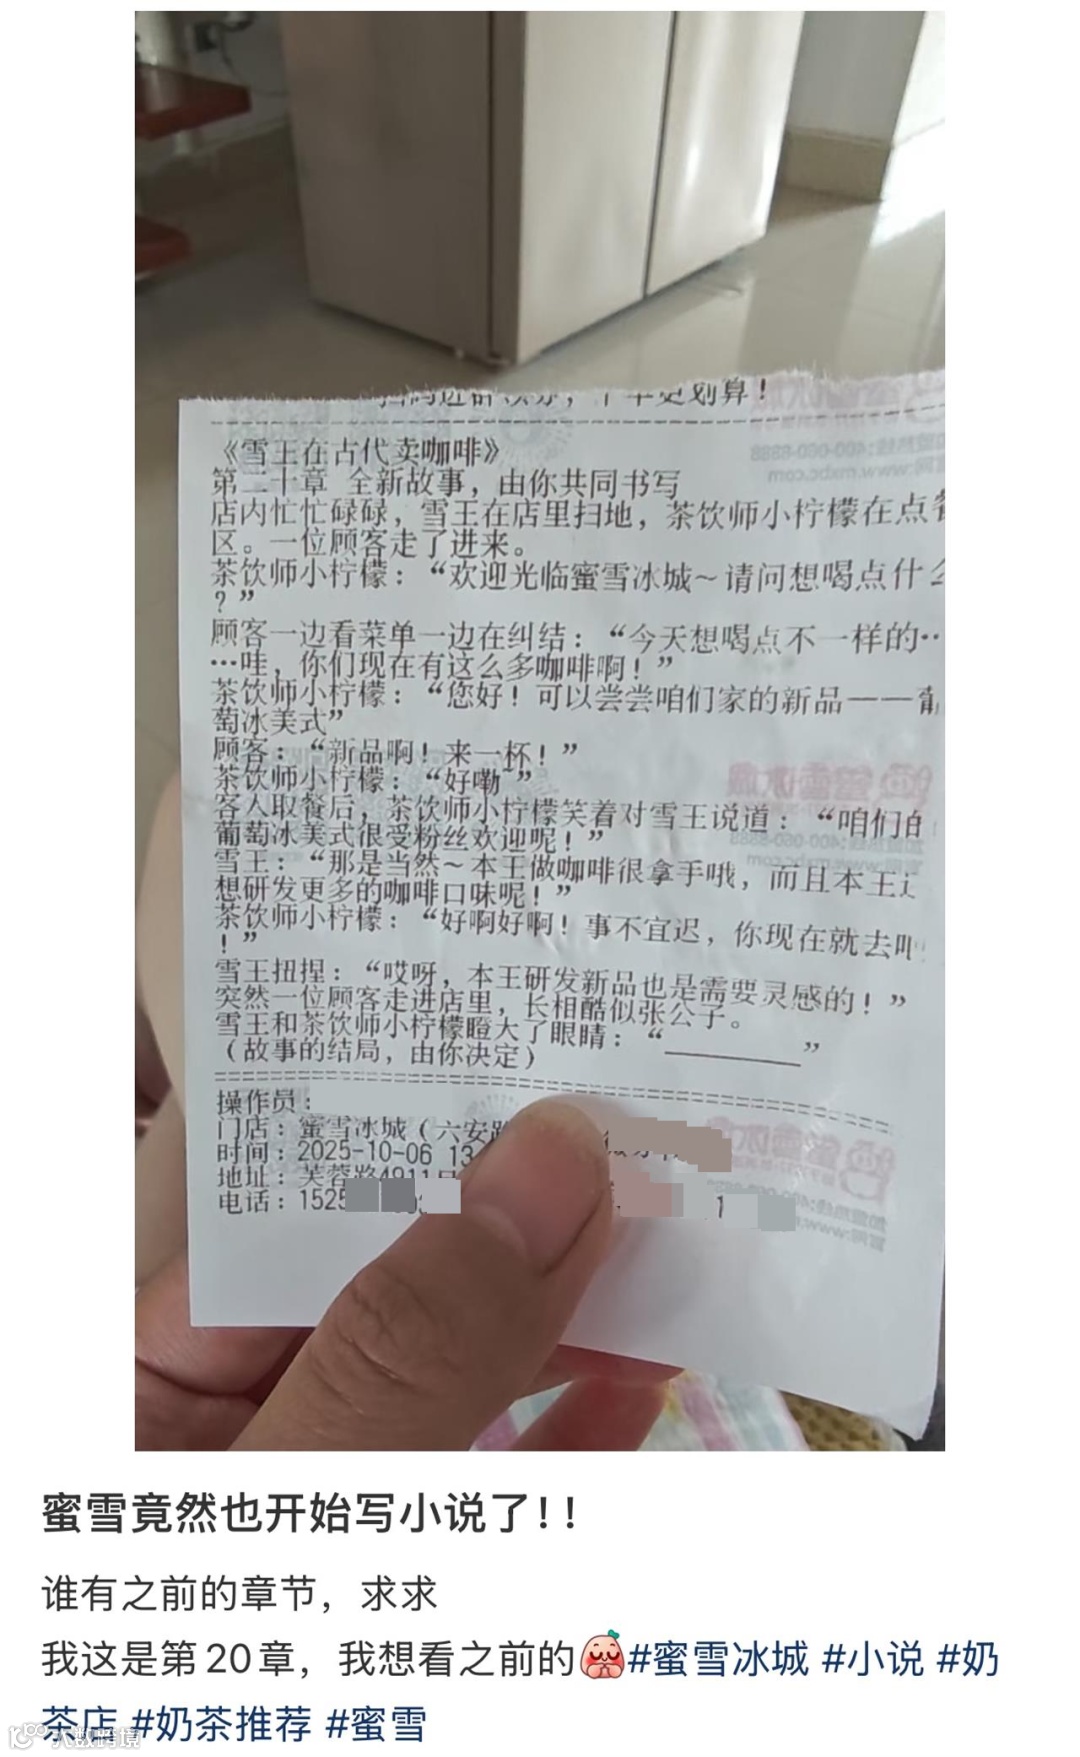 更划算！
《雪王在古代卖咖啡》
第二十章 全新故事，由你共同书写
店内忙忙碌碌，雪王在店里扫地，茶饮师小柠檬在点餐
区。一位顾客走了进来。
茶饮师小柠檬：“欢迎光临蜜雪冰城～请问想喝点什么
？”
顾客一边看菜单一边在纠结：“今天想喝点不一样的…
…哇，你们现在有这么多咖啡啊！”
茶饮师小柠檬：“您好！可以尝尝咱们家的新品——葡
萄冰美式”
顾客：“新品啊！来一杯！”
茶饮师小柠檬：“好嘞~”
客人取餐后，茶饮师小柠檬笑着对雪王说道：“咱们的
葡萄冰美式很受粉丝欢迎呢！”
雪王：“那是当然～本王做咖啡很拿手哦，而且本王还
想研发更多的咖啡口味呢！”
茶饮师小柠檬：“好啊好啊！事不宜迟，你现在就去吧
！”
雪王扭捏：“哎呀，本王研发新品也是需要灵感的！”
突然一位顾客走进店里，长相酷似张公子。
雪王和茶饮师小柠檬瞪大了眼睛：“________”
（故事的结局，由你决定）
操作员：
门店：蜜雪冰城（六安路
时间：2025-10-06 13
地址：芙蓉路4911号
电话：1525
蜜雪竟然也开始写小说了！！
谁有之前的章节，求求
我这是第20章，我想看之前的#蜜雪冰城 #小说 #奶
茶店 #奶茶推荐 #蜜雪
大数跨境